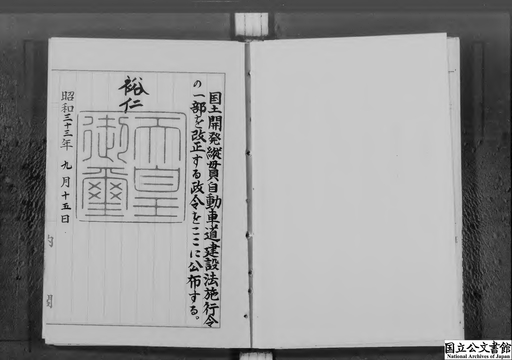 国土開発縦貫自動車道建設法施行令
の一部を改正する政令をここに公布する。
裕仁
天皇
御璽
昭和三十三年九月十五日
内閣
国立公文書館
National Archives of Japan